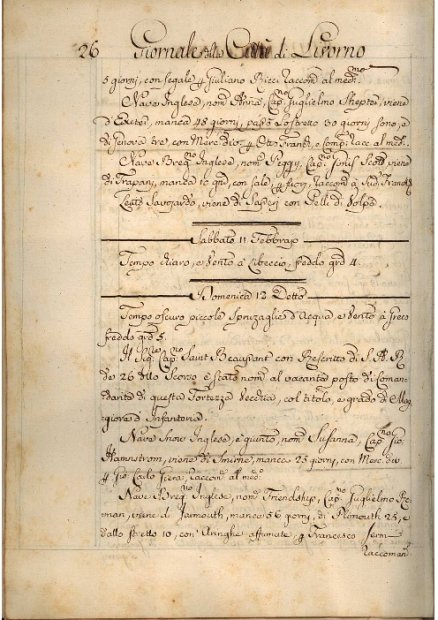 26 Giornale della Città di Livorno
5 giorni, con segale p Giuliano Ricci raccom. al med.mo
Nave Inglese, nom. Anna, Cap.no Guglielmo viene
d'Exeter, manca 48 giorni, passò lo stretto 30 giorni sono, e
di Genova tre, con Merc. p Otto Frank, e Comp. racc. al med.
Nave Breq.no Inglese, nom. Peggy, Cap. Scott viene
di Trapany, manca 10 grd, con sale p fuori, raccom. a Sud.
Savojardo, viene di con Pelli di Volpe.
Sabbato 11 Febbrajo
Tempo chiaro, e vento à Libeccio, freddo grd 4.
Domenica 12 Detto
Tempo oscuro piccole sprizzaglie d'Acqua, e vento à Greco
freddo grd 5.
Il Sig.re Cap.no Saint Beausant con Rescritto di S. A. R.
de 26 dello Scorso è stato nom. al vacante posto di Coman-
dante di questa Fortezza Vecchia, col titolo, e grado di Mag-
giore d'Infanteria.
Nave Snow Inglese, è giunto, nom. Susanna, Cap.no Gio.
Hamstrom, viene di Smirne, manca 25 giorni, con Merc.
p Gio. Carlo Giera, raccom. al med.
Nave Breq.no Inglese, nom. Friendship, Cap.no Guglielmo Re-
man, viene di Jarmouth, manca 56 giorni, di Plimouth 25, e
dallo stretto 10, con Aringhe affumate, p Francesco Jerm
raccoman.